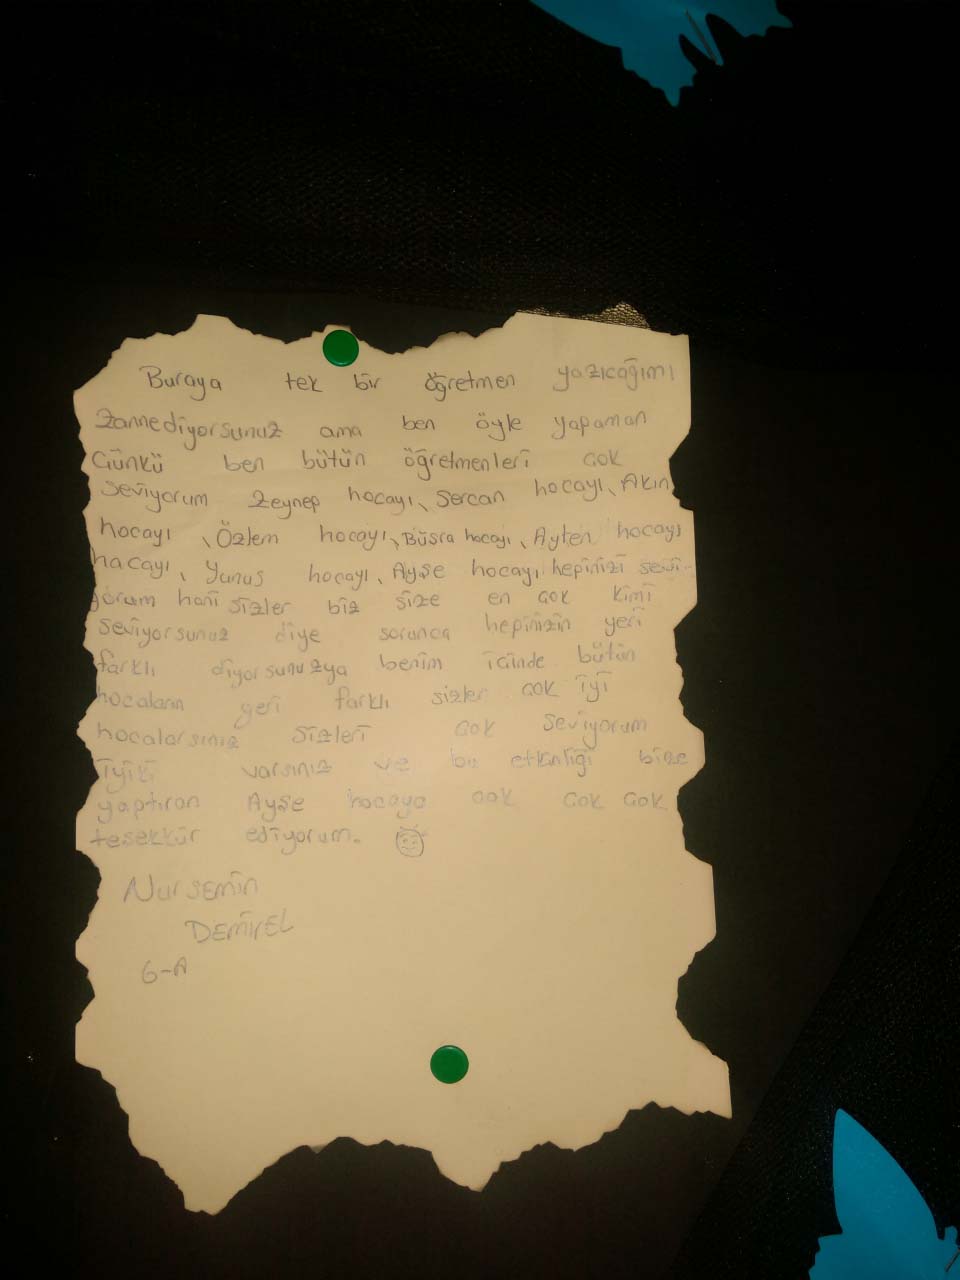 Buraya tek bir öğretmen yazıcağımı
zannediyorsunuz ama ben öyle yapamam
Günkü ben bütün öğretmenleri cok
seviyorum zeynep hocayı, Sercan hocayı, Akın
hocayı, Özlem hocayı, Büşra hocayı, Ayten hocayı
hacayı, Yunus hocayı, Ayşe hocayı hepinizi sevi-
yorum hani sizler biz size en cok kimi
seviyorsunuz diye sorunca hepinizin yeri
farklı diyorsunuzya benim icinde bütün
hocaların yeri farklı sizler cok iyi
hocalarsınız sizleri cok seviyorum
iyiki varsınız ve bu etkinliği bize
yaptıran Ayşe hocaya cok cok cok
teşekkür ediyorum.
Nursemin
DEMİREL
6-A